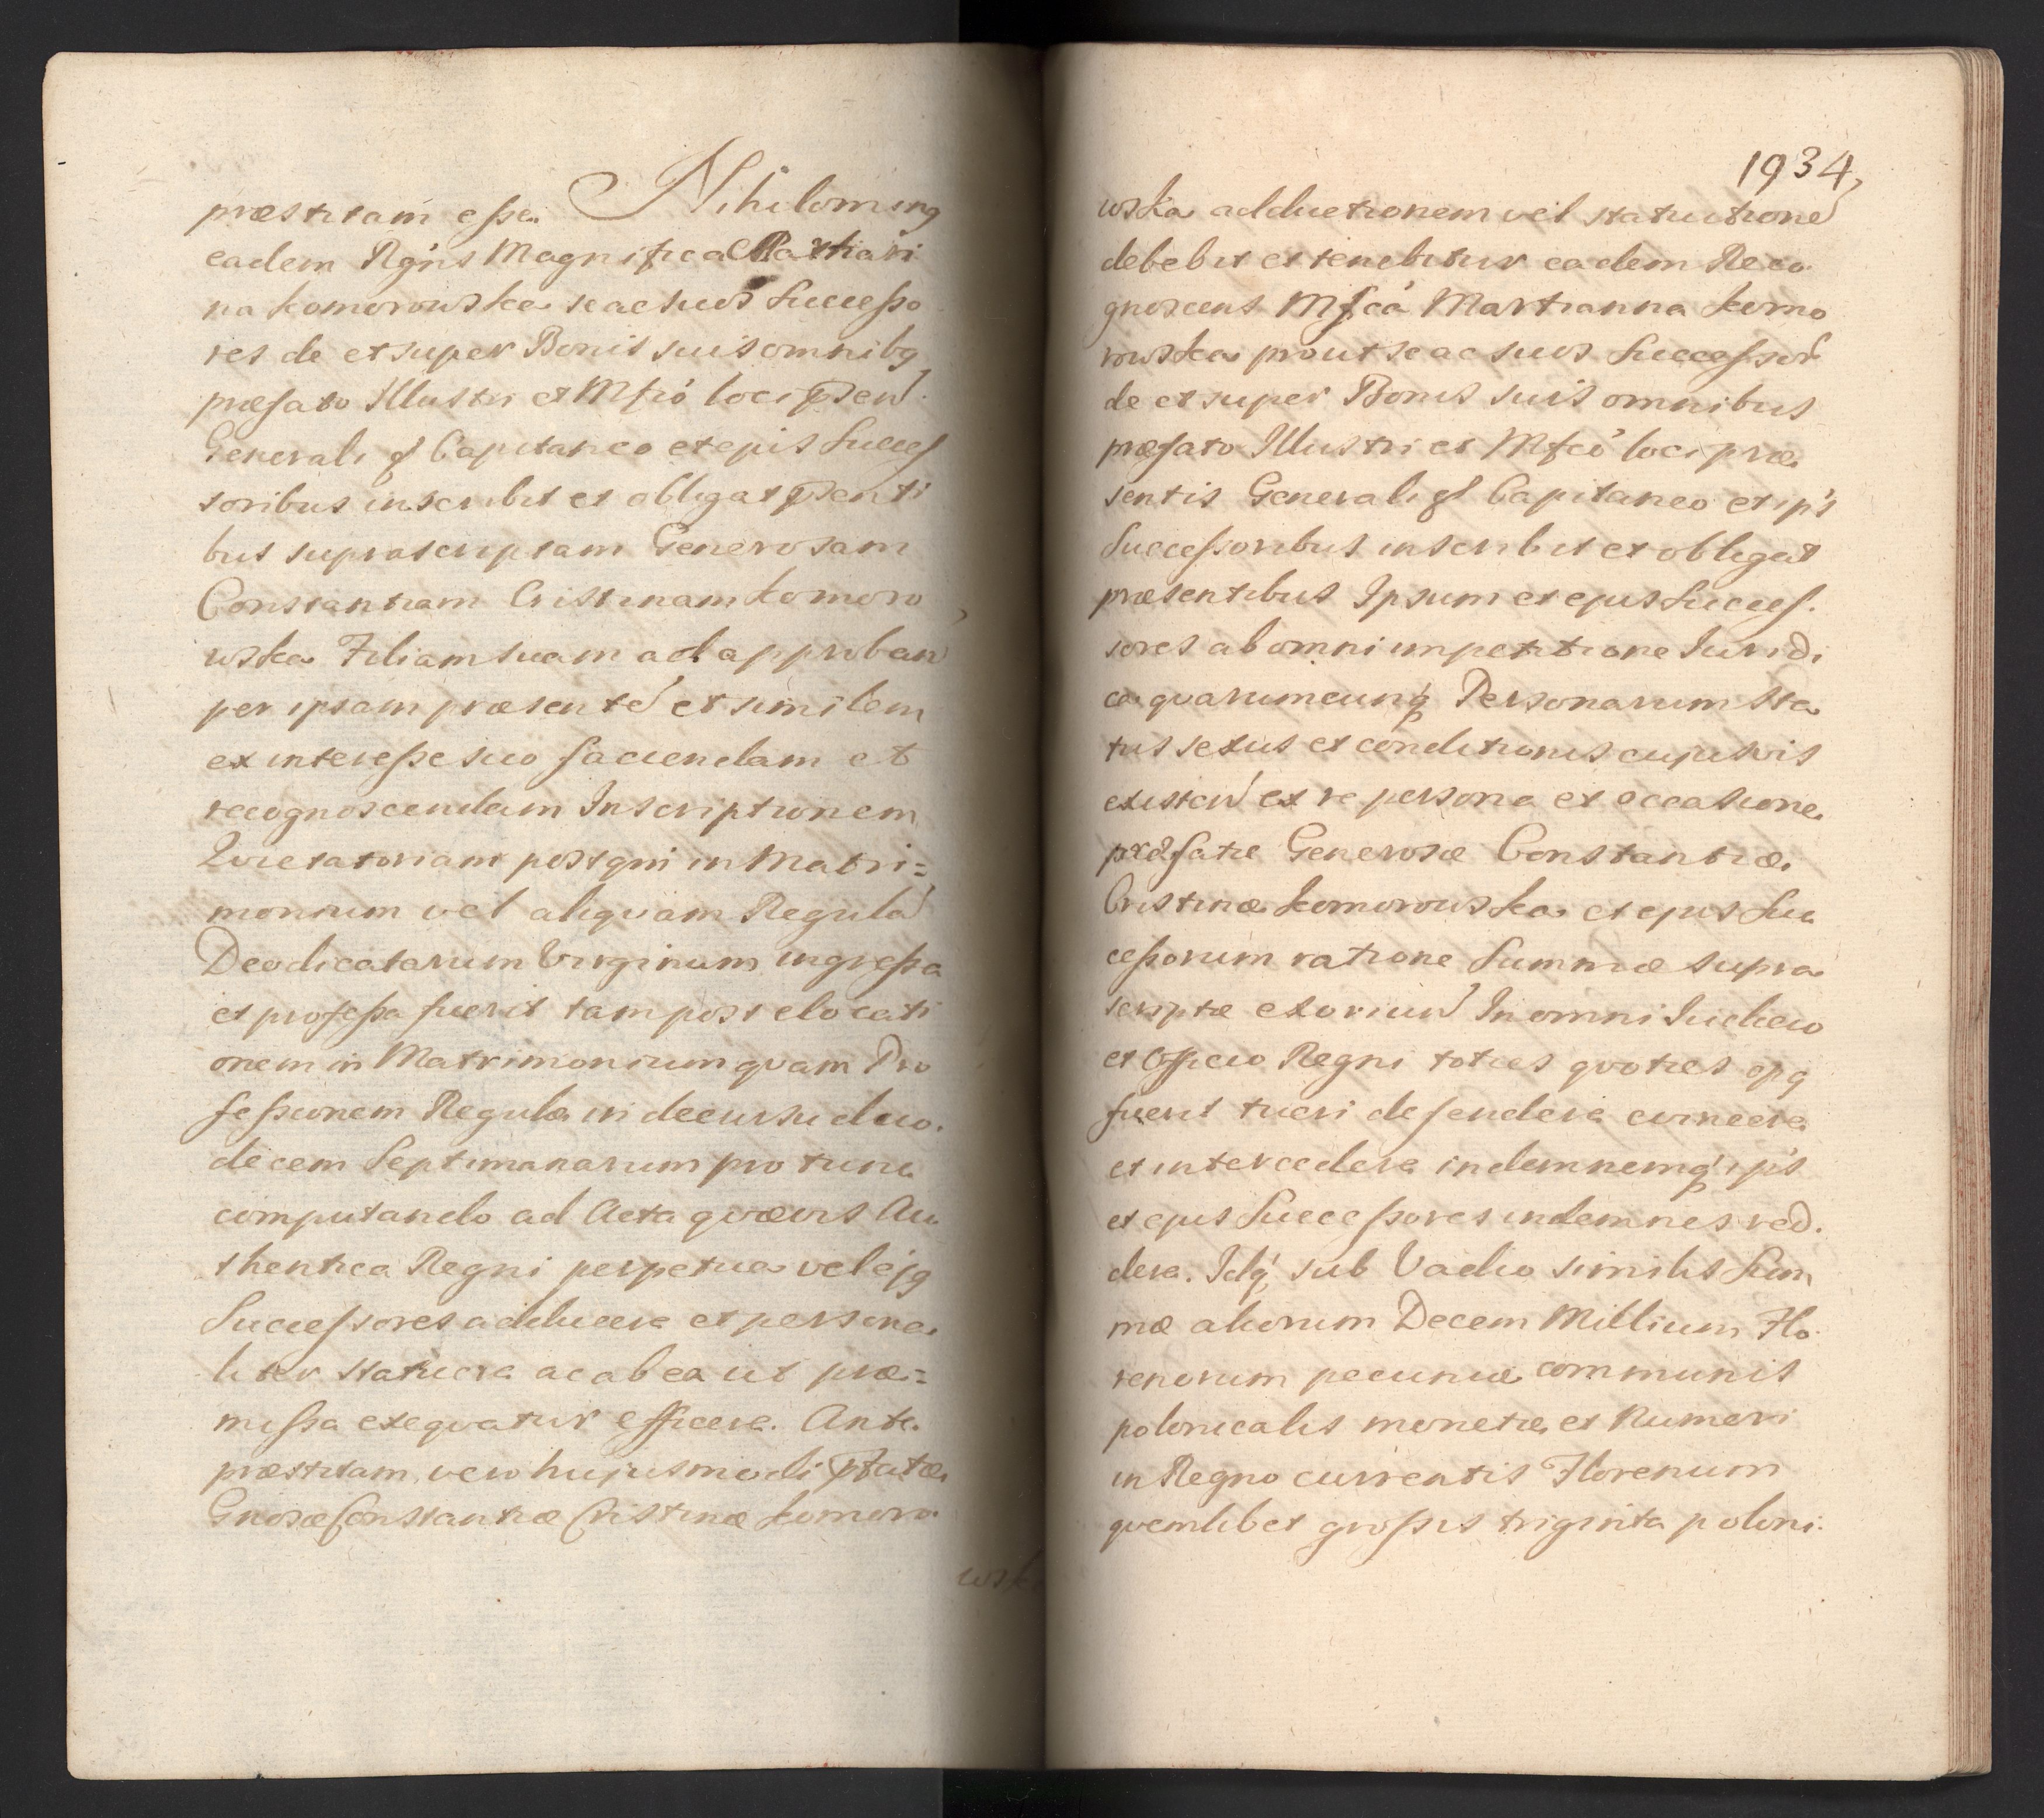 præstitam esse. Nihilominq
eadem Rgñs Magnifica Martian
na Komorowska se ac suos Successo
res de et super Bonis suis omnibq
præfato Illustri et Mfco loci p̄sen.
Generali gl Capitaneo et ejus Succes
soribus inscribit et obligat p̄senti
bus suprascriptam Generosam
Constantiam Cristinam Komoro
wska Filiam suam ad approban
per ipsam præsente et similem
ex interesse suo faciendam et
recognoscendam Inscriptionem
Quietatoriam postqm in Matri=
monium vel aliquam Regula
Deodicatarum Virginum ingressa
et professa fuerit tam post elocati
onem in Matrimonium quam Pro
fessionem Regulæ in decursu duo.
decem Septimanarum pro tunc
computando ad Acta quævis Au
thentica Regni perpetua vel ejq
Successores adducere et persona
liter statuere ac ab ea ut præ=
missa exequatur efficere. Ante
præstitam vero hujusmodi p̄fatæ
Gnosæ Constantiæ Cristinæ Komoro
wska
1934,
wska adductionem vel statutione
debebit et tenebitur eadem Reco
gnoscens Mfca Martianna Komo
rowska prout se ac suos Successor
de et super Bonis suis omnibus
præfato Illustri et Mfco loci præ
sentis Generali gl Capitaneo et ip's
Successoribus inscribit et obligat
præsentibus Ipsum et ejus Succes.
sores ab omni impetitione Iuridi
ca quarumcunq Personarum Sta
tus sexus et conditionis cujusvis
existen ex re persona et occasione
præfatæ Generosæ Constantiæ
Cristinæ Komorowska et ejus Suc
cessorum ratione Summæ supra
scriptæ exoriun In omni Iudicio
et Officio Regni toties quoties opq
fuerit tueri defendere evincere
et intercedere indemnemq ip's
et ejus Successores indemnes red.
dere. Idq sub Vadio similis Sum
mæ aliorum Decem Millium Flo
renorum pecuniæ communis
polonicalis monetæ et Numeri
in Regno currentis Florenum
quemlibet grossis triginta poloni.